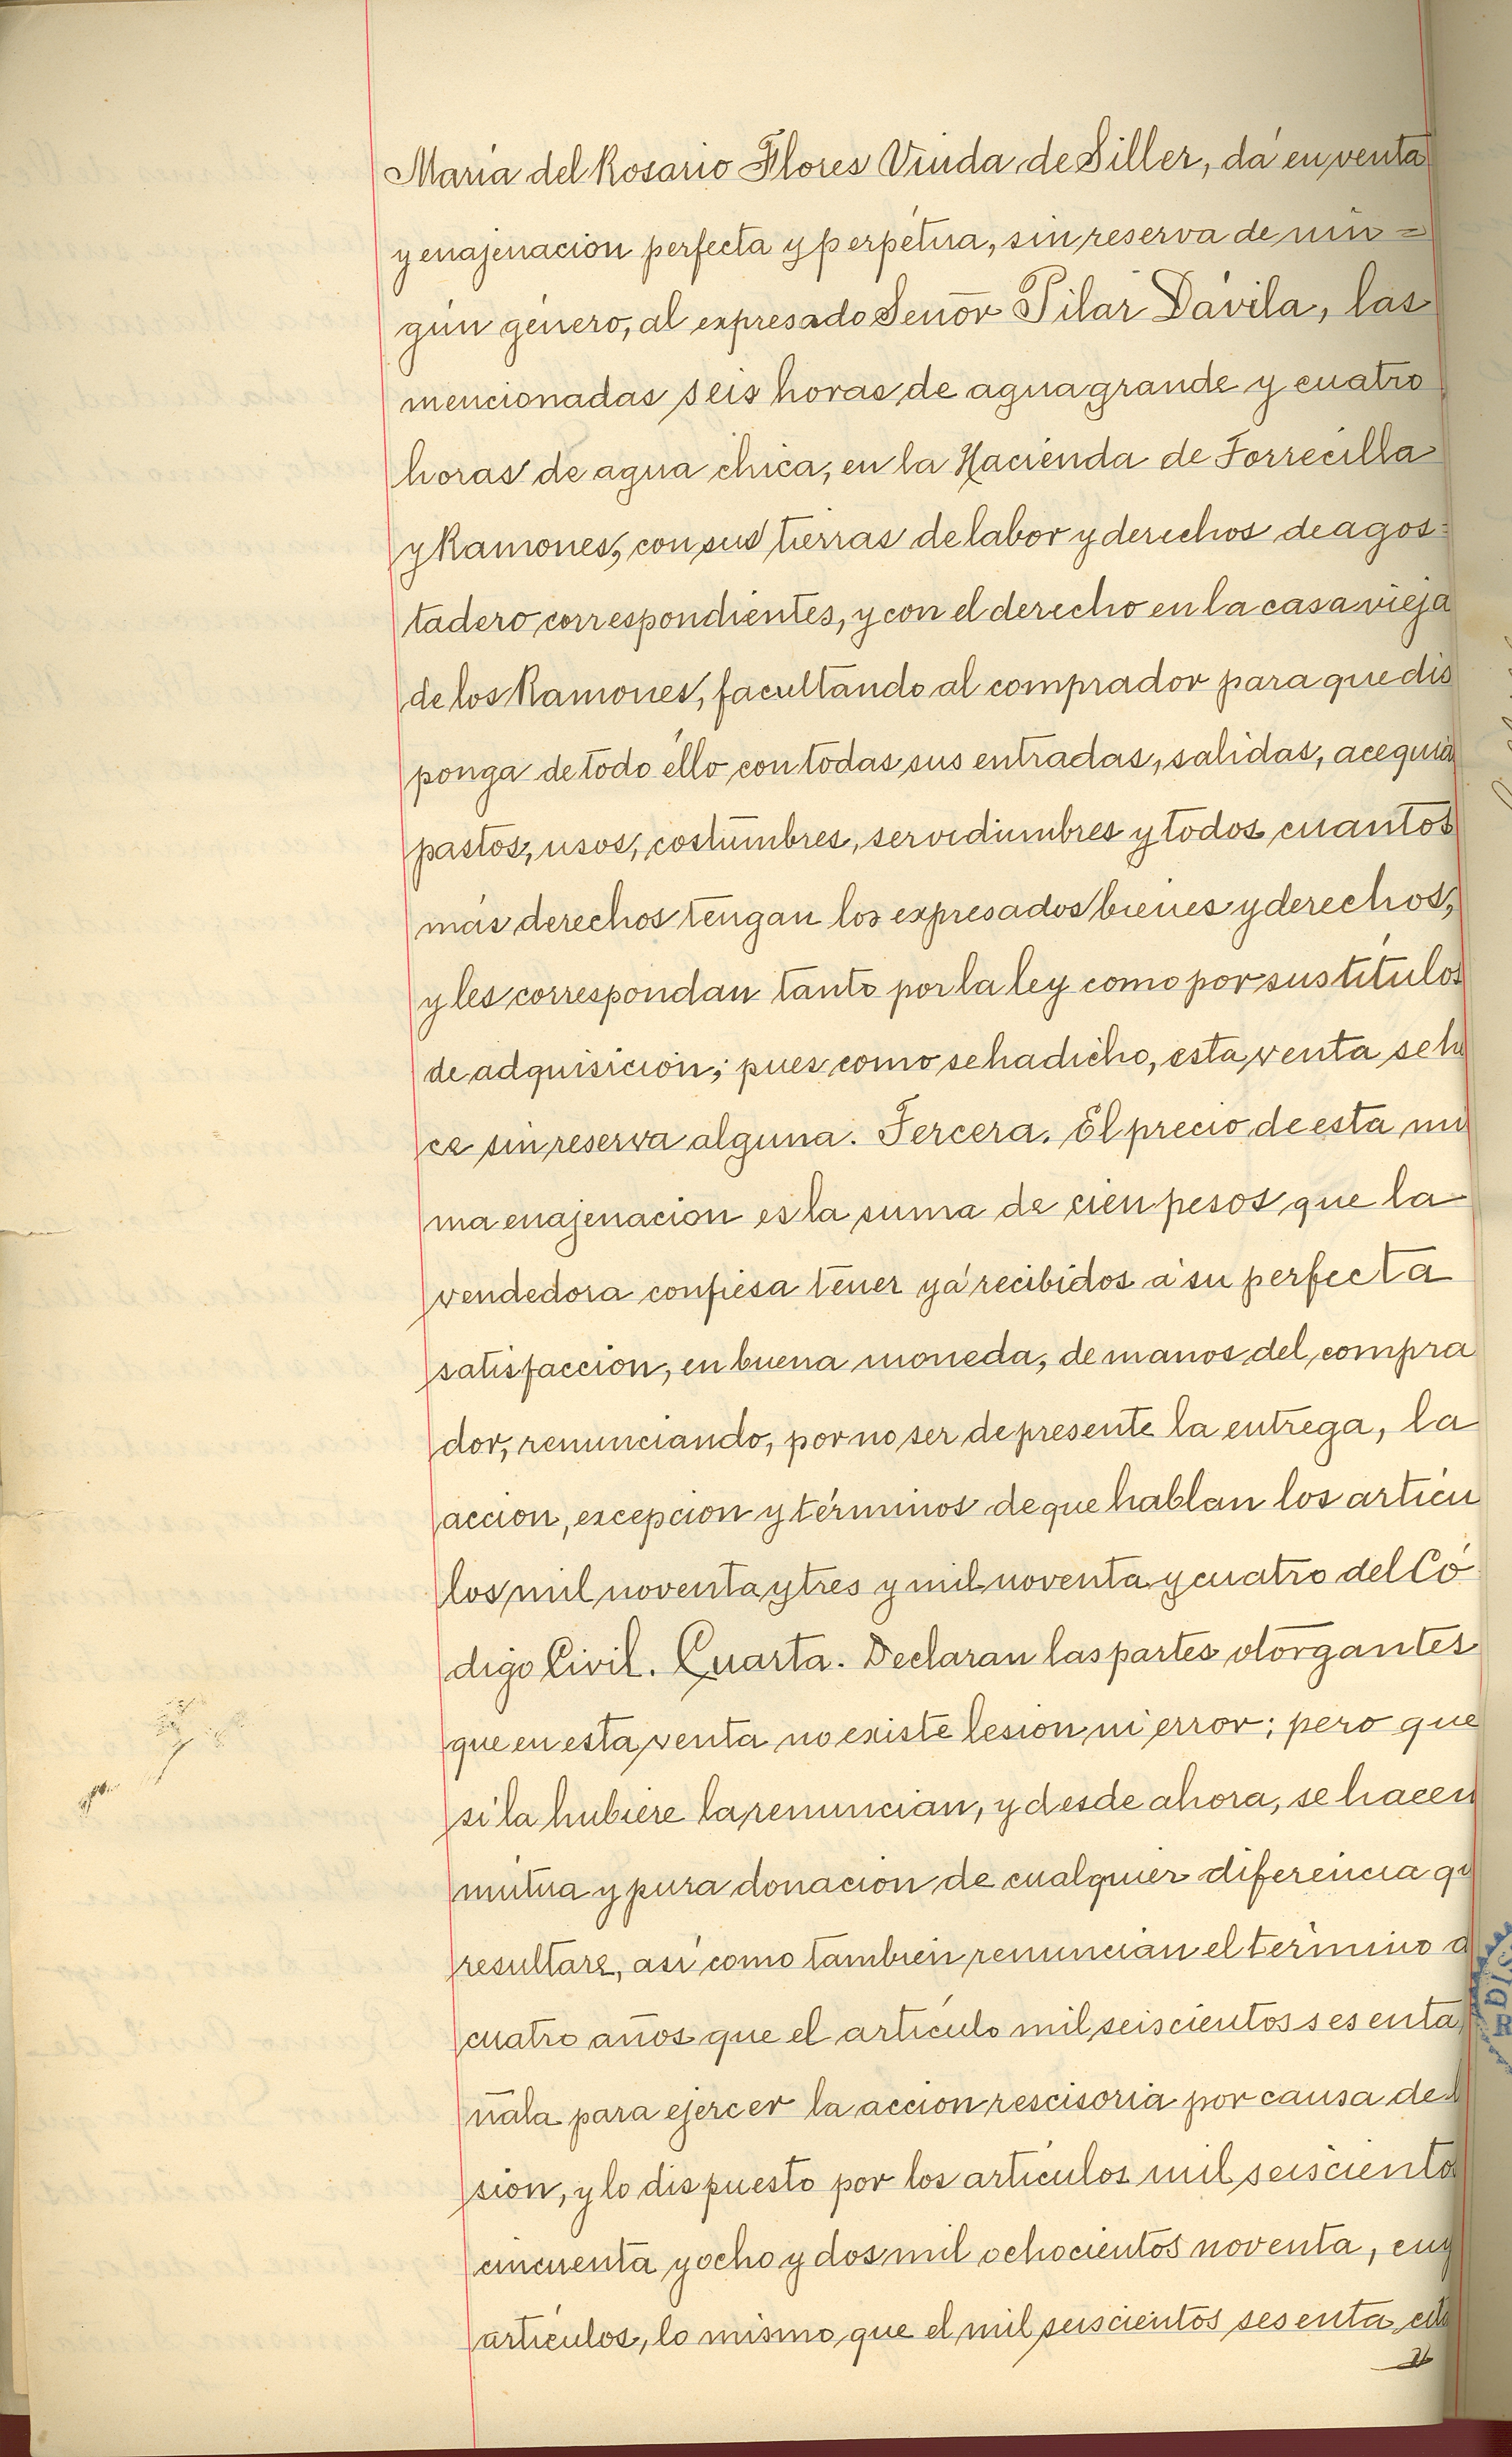 María del Rosario Flores Viuda de Siller, dá en venta
y enajenación perfecta y perpétua, sin reserva de nin=
gún género, al expresado Señor Pilar Dávila, las
mencionadas seis horas de agua grande y cuatro
horas de agua chica, en la Hacienda de Torrecilla
y Ramones, con sus tierras de labor y derechos de agos=
tadero correspondientes, y con el derecho en la casa vieja
de los Ramones, facultando al comprador para que dis
ponga de todo éllo con todas sus entradas, salidas, acequia
pastos, usos, costumbres, servidumbres y todos cuantos
más derechos tengan los expresados bienes y derechos,
y les correspondan tanto por la ley como por sus títulos
de adquisición; pues como se ha dicho, esta venta se h
ce sin reserva alguna. Tercera. El precio de esta mi
ma enajenación es la suma de cien pesos que la
vendedora confiesa tener yá recibidos á su perfecta
satisfacción, en buena moneda, de manos del compra
dor, renunciando, por no ser de presente la entrega, la
acción, excepción y términos de que hablan los artícu
los mil noventa y tres y mil noventa y cuatro del Có
digo Civil. Cuarta. Declaran las partes otorgantes
que en esta venta no existe lesión ni error; pero que
si la hubiere la renuncian, y desde ahora, se hacen
mútua y pura donación de cualquier diferencia qu
resultare, así como también renuncian el término d
cuatro años que el artículo mil seiscientos sesenta
ñala para ejercer la acción rescisoria por causa de l
sión, y lo dispuesto por los artículos mil seiscientos
cincuenta y ocho y dos mil ochocientos noventa, cuy
artículos, lo mismo que el mil seiscientos sesenta cita